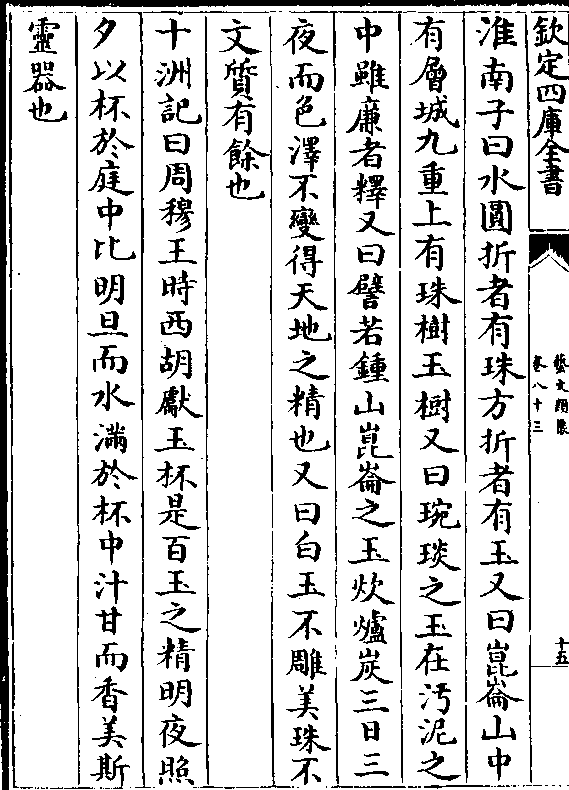 欽定四庫全書
藝文類聚
卷八十三
十五
淮南子曰水圓折者有珠方折者有玉又曰崑崙山中
有層城九重上有珠樹玉樹又曰琬琰之玉在汚泥之
中雖廉者釋又曰譬若鍾山崑崙之玉炊爐炭三日三
夜而色澤不變得天地之精也又曰白玉不雕美珠不
文質有餘也
十洲記曰周穆王時西胡獻玉杯是百玉之精明夜照
夕以杯於庭中比明旦而水滿於杯中汁甘而香美斯
靈器也